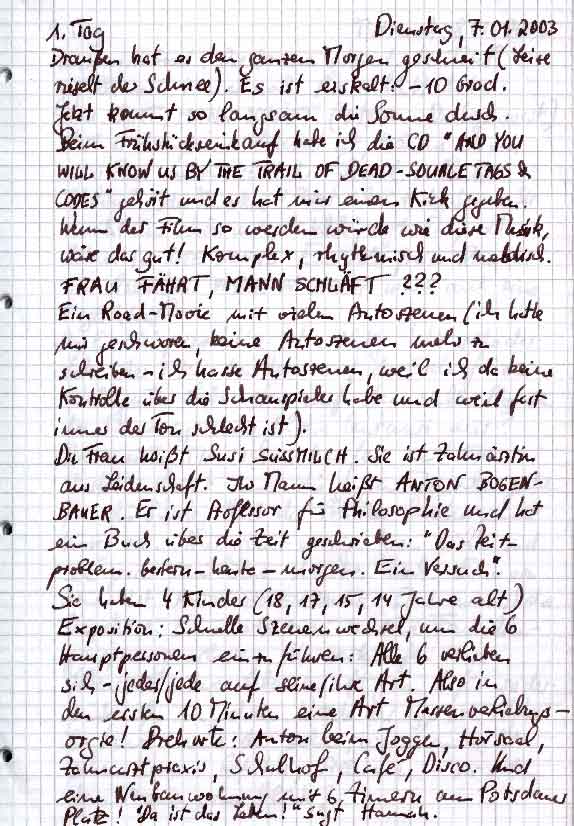 1. Tag Dienstag, 7.01.2003
Draußen hat es den ganzen Morgen geschneit (Leise
rieselt der Schnee). Es ist eiskalt: -10 Grad.
Jetzt kommt so langsam die Sonne durch.
Beim Frühstückseinkauf habe ich die CD "AND YOU
WILL KNOW US BY THE TRAIL OF DEAD - SOURCE TAGS &
CODES" gehört und es hat mir einen Kick gegeben.
Wenn der Film so werden würde wie diese Musik,
wäre das gut! Komplex, rhythmisch und melodisch.
FRAU FÄHRT, MANN SCHLÄFT ???
Ein Road-Movie mit vielen Autoszenen (ich hatte
mir geschworen, keine Autoszenen mehr zu
schreiben - ich hasse Autoszenen, weil ich da keine
Kontrolle über die Schauspieler habe und weil fast
immer der Ton schlecht ist).
Die Frau heißt Susi SÜSSMILCH. Sie ist Zahnärztin
aus Leidenschaft. Ihr Mann heißt ANTON BOGEN-
BAUER. Er ist Professor für Philosophie und hat
ein Buch über die Zeit geschrieben: "Das Zeit-
problem. Gestern - heute - morgen. Ein Versuch".
Sie haben 4 Kinder (18, 17, 15, 14 Jahre alt)
Exposition: Schnelle Szenenwechsel, um die 6
Hauptpersonen einzuführen: Alle 6 verlieben
sich - jeder/jede auf seine/ihre Art. Also in
den ersten 10 Minuten eine Art Massenverliebungs-
orgie! Drehorte: Anton beim Joggen, Hörsaal,
Zahnarztpraxis, Schulhof, Café, Disco. Und
eine Neubauwohnung mit 6 Zimmern am Potsdamer
Platz! "Da ist das Leben!" sagt Hannah.